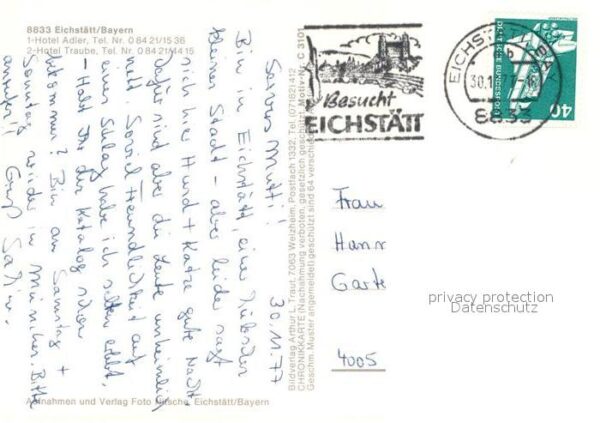 8833 Eichstätt/Bayern
1-Hotel Adler, Tel. Nr. 0 84 21/15 36
2-Hotel Traube, Tel. Nr. 0 84 21/14 15
30.11.77
Servus Mutti!
Bin in Eichstätt, eine hübsche
kleine Stadt - aber leider sagt
sich hier Hund + Katze gute Nacht.
Dafür sind aber die Leute unheimlich
nett. Soviel Freundlichkeit auf
einen Schlag habe ich selten erlebt.
- Habt Ihr den Katalog schon
bekommen? Bin am Samstag +
Sonntag wieder in München. Bitte
anrufen!! Gruß
Aufnahmen und Verlag Foto Eichstätt/Bayern
Bildverlag Arthur L. Traut, 7063 Welzheim, Postfach 1332, Tel. (07182) 412
CHRONIKKARTE (Nachahmung verboten, gesetzlich geschützt. Motiv-Nr. C 3101
Geschm. Muster angemeldet) geschützt sind 64 verschiedene
Besucht
EICHSTÄTT
EICHSTÄTT, BAY
8833
DEUTSCHE BUNDESPOST
40
Frau
Hann
Garte
4005
privacy protection
Datenschutz